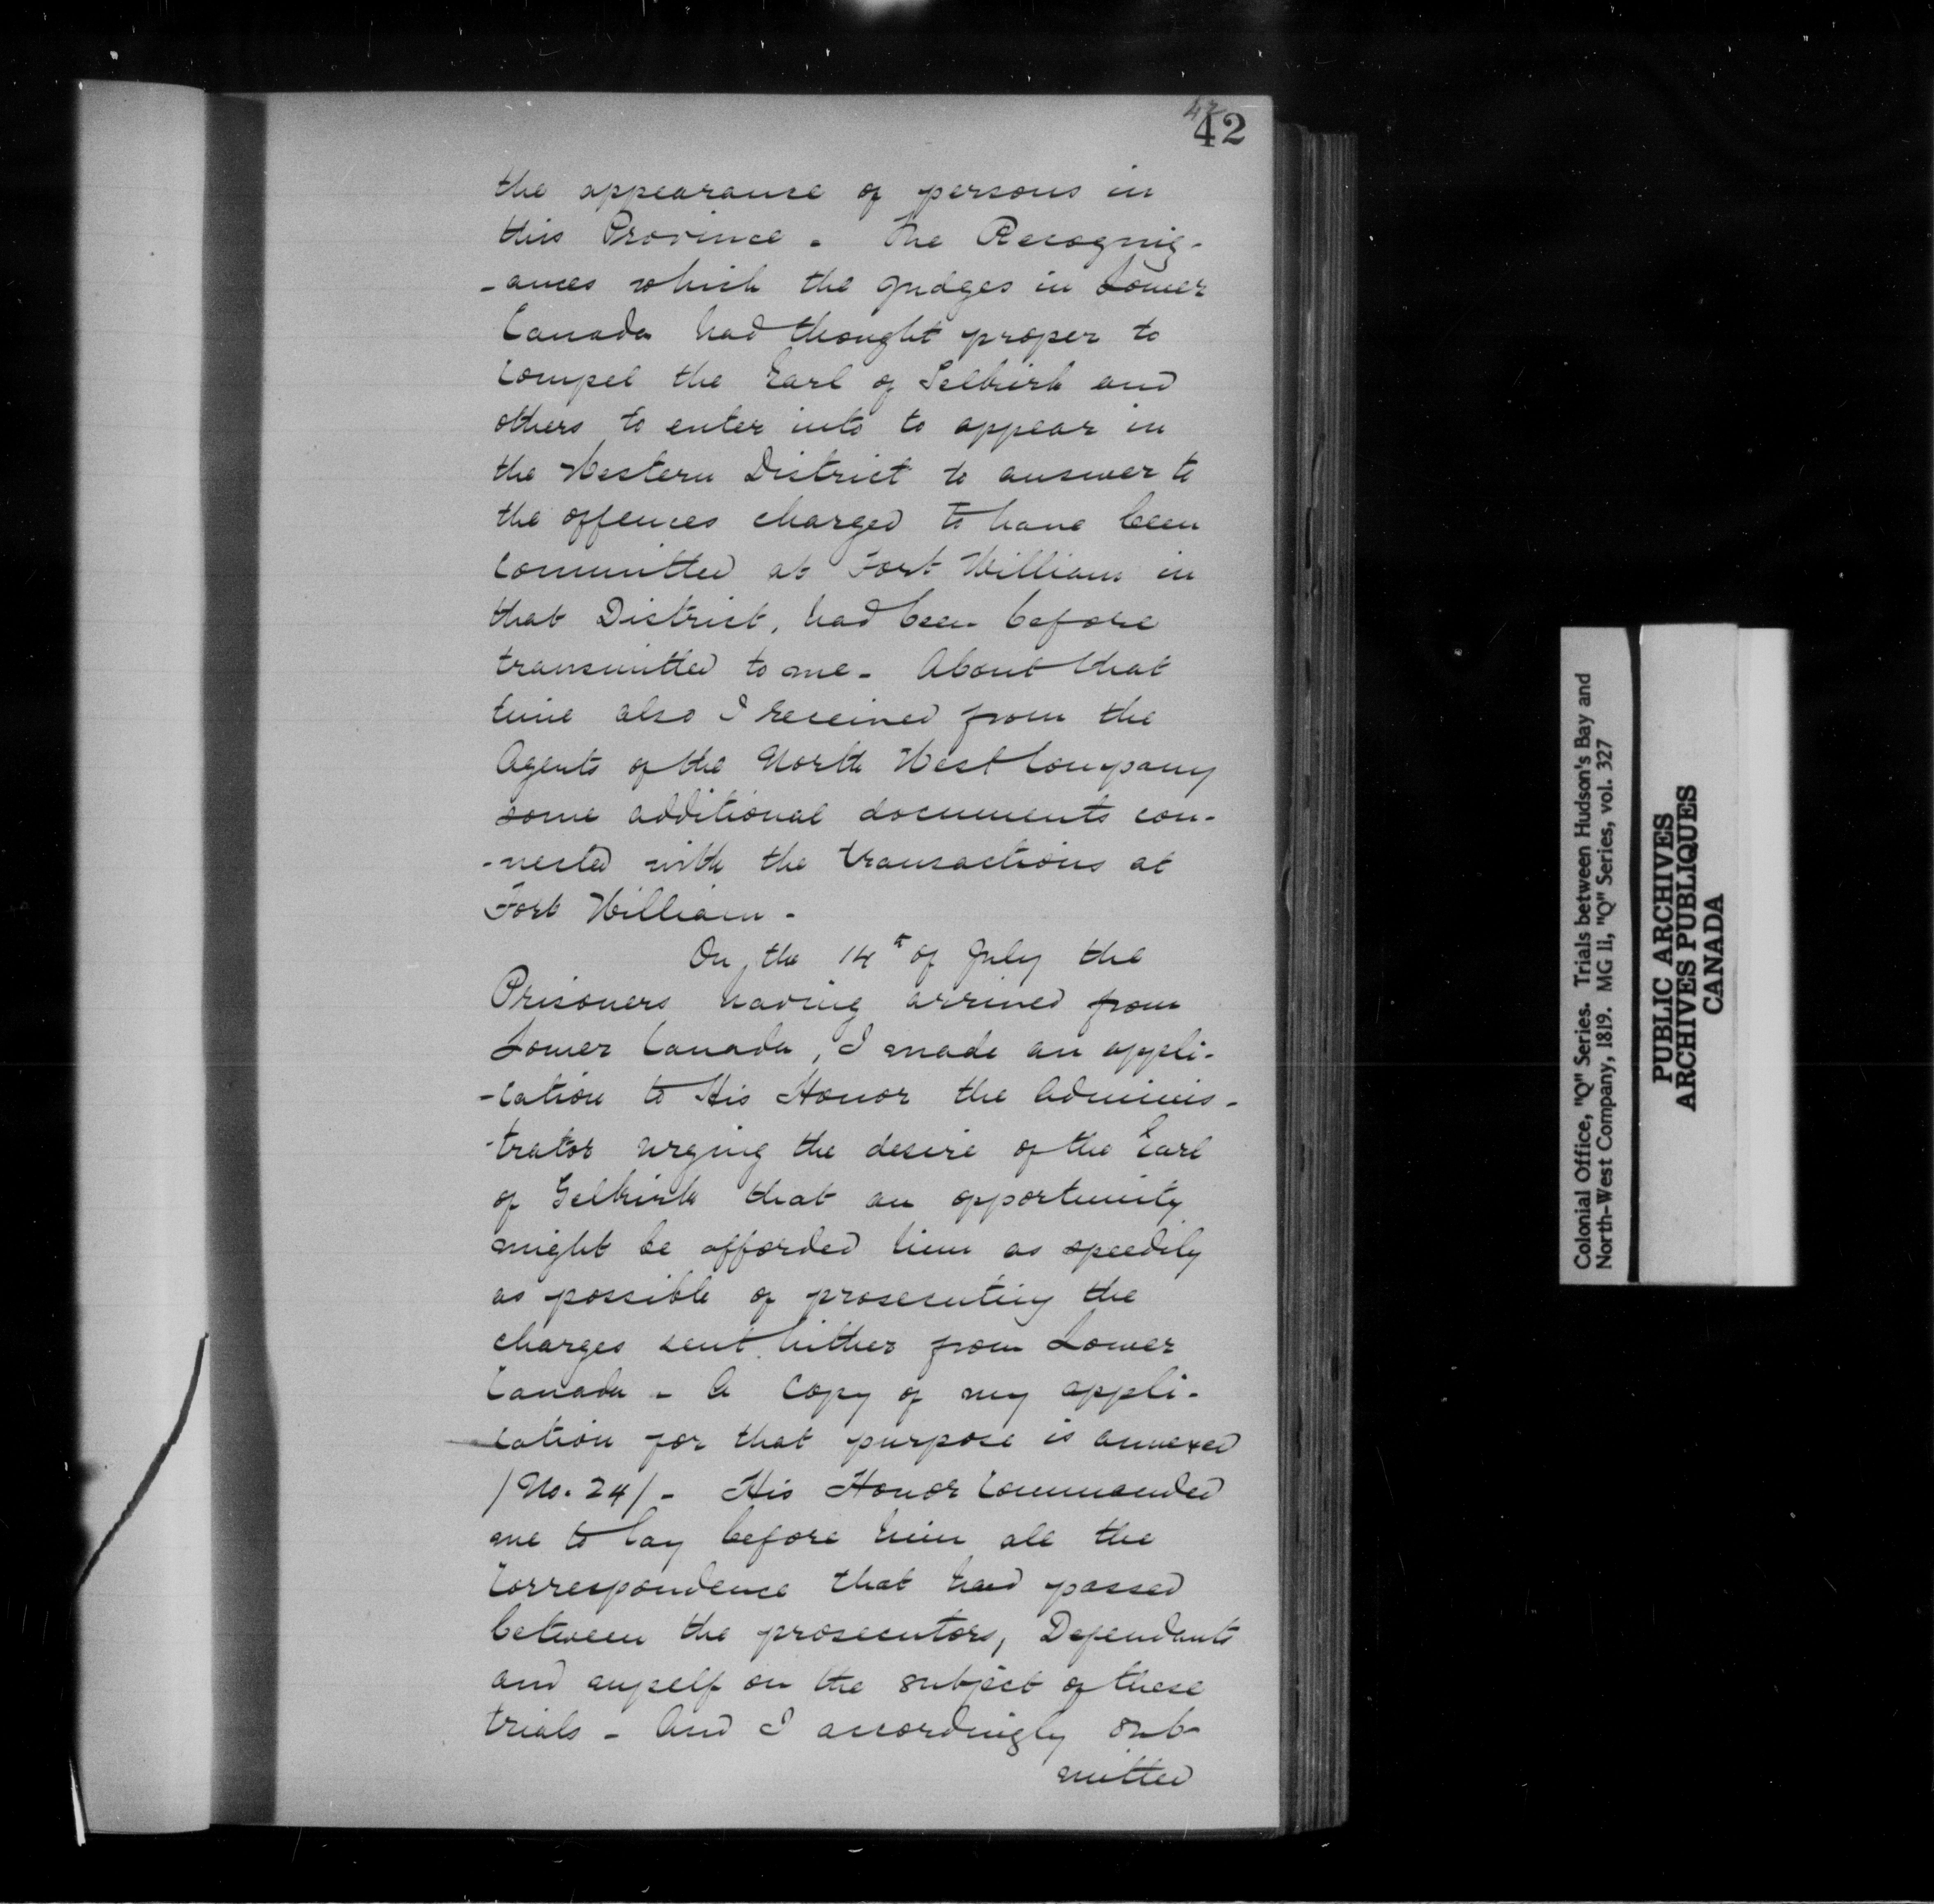 42
42
the appearance of persons in
this Province - The Recogniz-
-ances which the Judges in Lower
Canada had thought proper to
compel the Earl of Selkirk and
others to enter into to appear in
the Western District to answer to
the offences charged to have been
committed at Fort William in
that District, had been before
transmitted to me - About that
time also I received from the
Agents of the North West Company
some additional documents con-
-nected with the transactions at
Fort William -
On the 14th of July the
Prisoners having arrived from
Lower Canada, I made an appli-
-cation to His Honor the Adminis-
-trator urging the desire of the Earl
of Selkirk that an opportunity
might be afforded him as speedily
as possible of prosecuting the
charges sent hither from Lower
Canada - A Copy of my appli-
-cation for that purpose is annexed
/No. 24/- His Honor Commanded
me to lay before him all the
Correspondence that had passed
between the prosecutors, Defendants
and myself on the subject of these
trials - And I accordingly sub-
mitted
Colonial Office, "Q" Series. Trials between Hudson's Bay and
North-West Company, 1819. MG 11, "Q" Series, vol. 327
PUBLIC ARCHIVES
ARCHIVES PUBLIQUES
CANADA